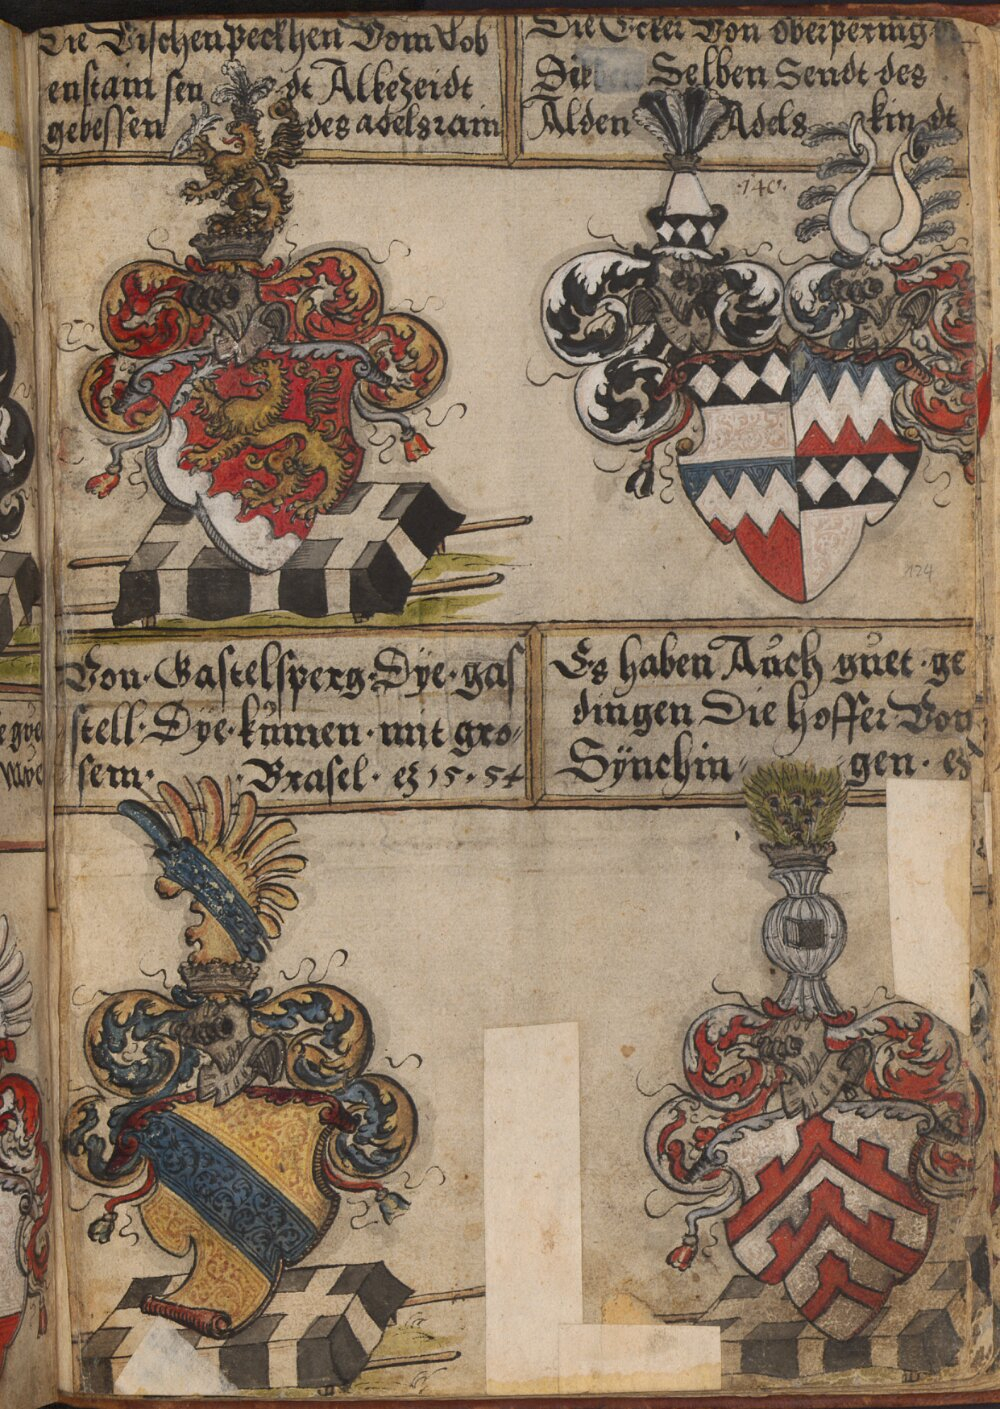 Die Vischenpeckhen Vom Lob
enstain sen dt Alkezeidt
gebessen des adels rain
Die Ecker Von oberpering
Selben Sendt des
Alden Adels kin dt
·14C·
124
Von · Gastelsperg · Dÿe · gas
stell · Dÿe · kumen · mit gro
sem · Brasel · eƷ 15 · 54
Es haben Auch guet · ge
dingen Die hoffer Von
Sÿnchin gen · eƷ